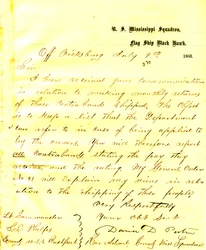 U. S. Mississippi Squadron,
Flag Ship Black Hawk,
Off Vicksburg July 9th 1863.
Sir
I have received your communication
in relation to making monthly returns
of these Contrabands Shipped, the Object
is to keep a list that the Department
can refer to in case of being applied to
by the owners. You will therefore report
all Contrabands stating the pay they
receive and the rating. My General Order
No will explain my views in rela-
tion to the shipping of these people,
Very Respectfully
Your Obt Servt
David D. Porter
Lt Commander
S. L. Phelps